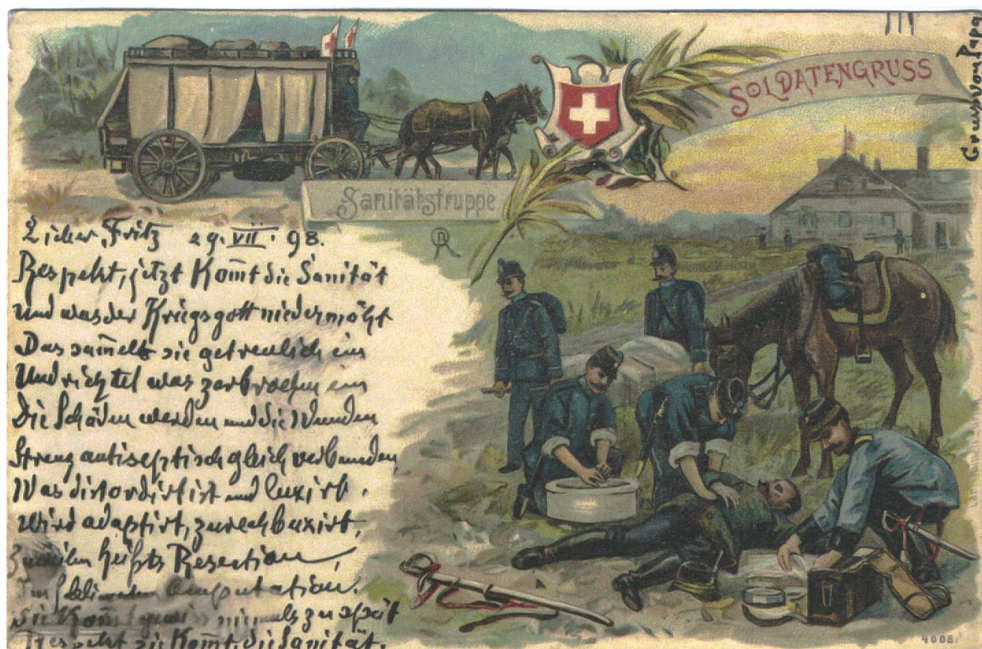 SOLDATENGRUSS
Gruss von Papa
Sanitätstruppe.
Lieber Fritz 29. VII. 98.
Respekt, jetzt kom̄t die Sanität
Und was der Kriegsgott niedermäht
Das sam̄elt sie getreulich ein
Und richtet was zerbrochen ein
Die Schäden werden und die Wunden
Streng antiseptisch gleich verbunden,
Was distordirt ist und luxirt,
Wird adaptirt, zurechbuxirt,
Zuweilen heissts Resection,
Im schlimmsten Amputation.
Sie kom̄t gewiss niemals zu spät
Respekt sie kom̄t, die Sanität.
4008.